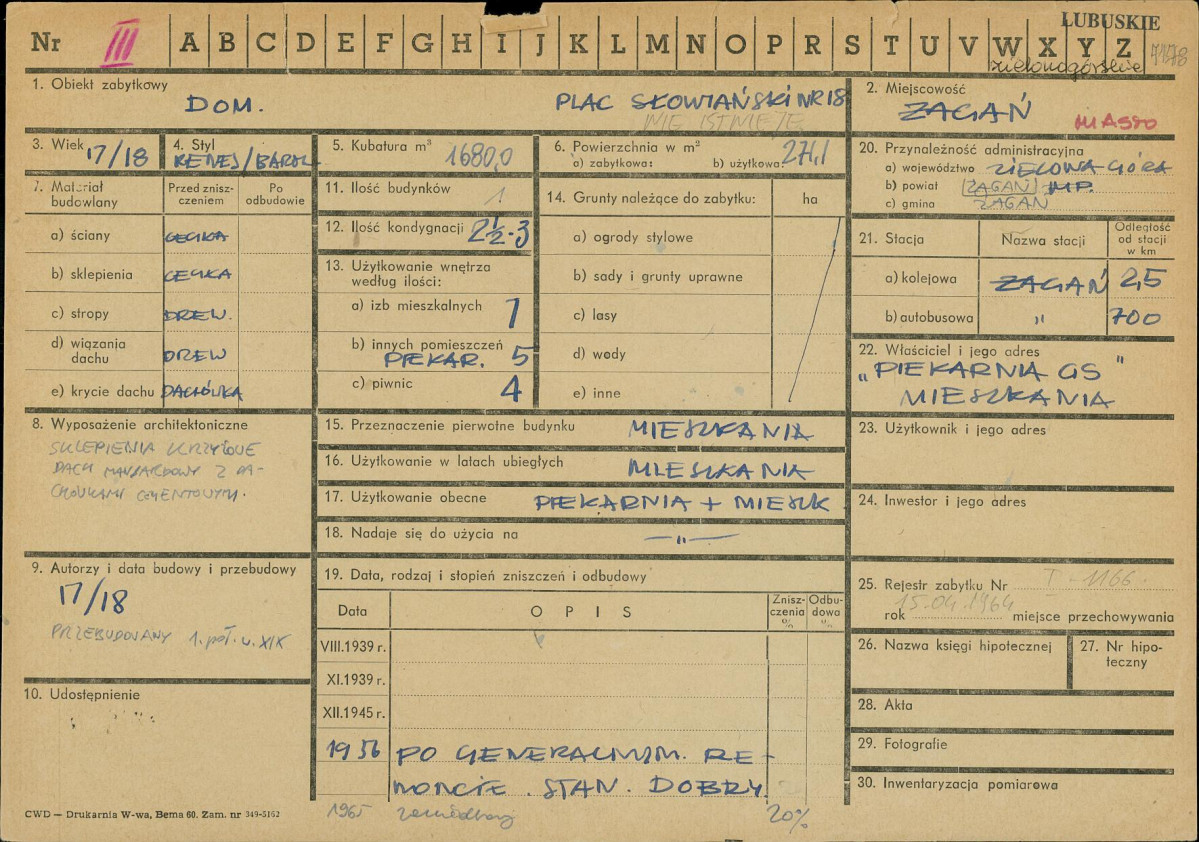 LUBUSKIE
Nr III A B C D E F G H I J K L M N O P R S T U V W X Y Z
zielonogórskie
1. Obiekt zabytkowy
DOM. PLAC SŁOWIAŃSKI NR 18
NIE ISTNIEJE
2. Miejscowość
ŻAGAŃ MIASTO
3. Wiek 17/18
4. Styl
RENES/BAROK
5. Kubatura m³ 1680,0
6. Powierzchnia w m²
a) zabytkowa: b) użytkowa: 271,1
7. Materiał budowlany
Przed zniszczeniem
Po odbudowie
a) ściany CEGŁA
b) sklepienia CEGŁA
c) stropy DREW.
d) wiązania dachu DREW
e) krycie dachu DACHÓWKA
8. Wyposażenie architektoniczne
SKLEPIENIA KRZYŻOWE
DACH MANSARDOWY Z DA-
CHÓWKAMI CEMENTOWYM.
9. Autorzy i data budowy i przebudowy
17/18
PRZEBUDOWANY 1. poł. w. XIX
10. Udostępnienie
11. Ilość budynków 1
12. Ilość kondygnacji 2½-3
13. Użytkowanie wnętrza
według ilości:
a) izb mieszkalnych 7
b) innych pomieszczeń
PIEKAR. 5
c) piwnic 4
14. Grunty należące do zabytku: ha
a) ogrody stylowe
b) sady i grunty uprawne
c) lasy
d) wody
e) inne
15. Przeznaczenie pierwotne budynku MIESZKANIA
16. Użytkowanie w latach ubiegłych MIESZKANIA
17. Użytkowanie obecne PIEKARNIA + MIESZK
18. Nadaje się do użycia na —"—
19. Data, rodzaj i stopień zniszczeń i odbudowy
Data O P I S Zniszczenia % Odbudowa %
VIII.1939 r.
XI.1939 r.
XII.1945 r.
1956 PO GENERALNYM. RE-
MONCIE. STAN. DOBRY.
1965 zaniedbany 20%
20. Przynależność administracyjna
a) województwo ZIELONA GÓRA
b) powiat ŻAGAŃ MP.
c) gmina ŻAGAŃ
21. Stacja Nazwa stacji Odległość od stacji w km
a) kolejowa ŻAGAŃ 2,5
b) autobusowa " 700
22. Właściciel i jego adres
„PIEKARNIA GS"
MIESZKANIA
23. Użytkownik i jego adres
24. Inwestor i jego adres
25. Rejestr zabytku Nr I-1166.
rok 15.04.1964 miejsce przechowywania
26. Nazwa księgi hipotecznej
27. Nr hipoteczny
28. Akta
29. Fotografie
30. Inwentaryzacja pomiarowa
CWD — Drukarnia W-wa, Bema 60. Zam. nr 349-5162